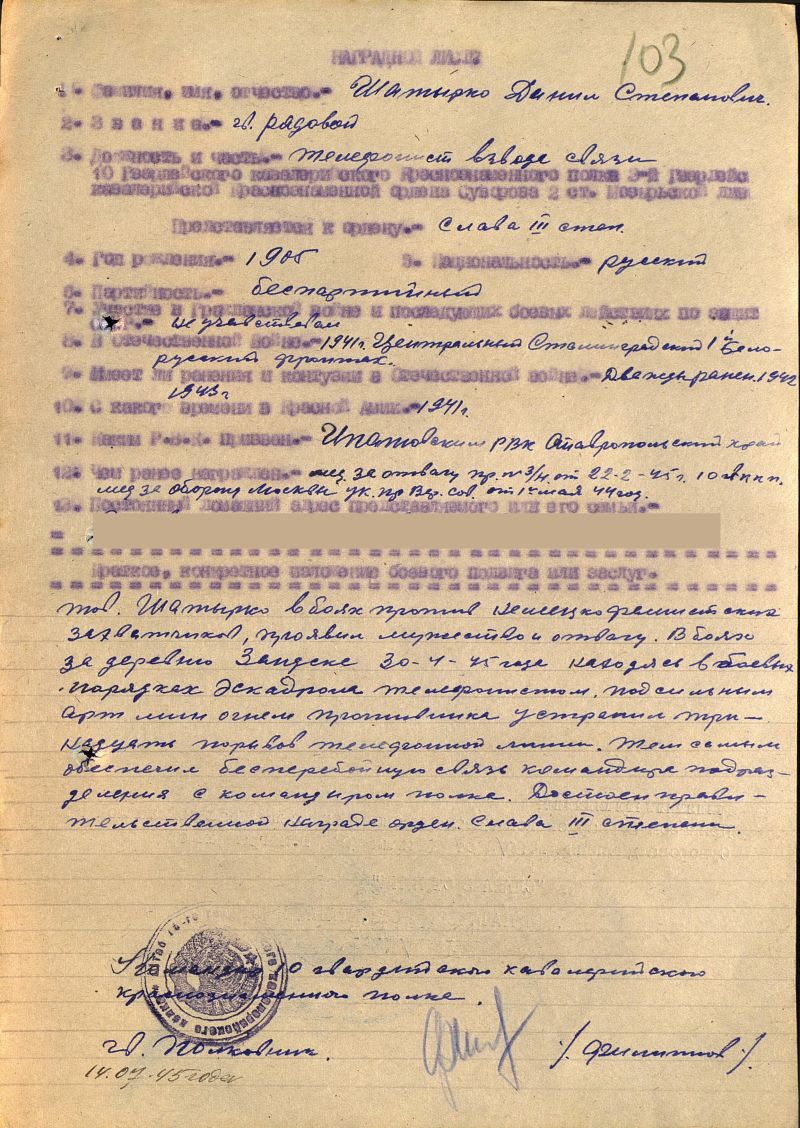 103
НАГРАДНОЙ ЛИСТ
1- Фамилия, имя, отчество.- Шатырко Данил Степанович.
2- З в а н и е.- гв. рядовой
3- Должность и часть.- телефонист взвода связи
10 Гвардейского кавалерийского Краснознаменного полка 3-й Гвардейс
кавалерийской Краснознаменной ордена Суворова 2 ст. Мозырьской див
Представляется к ордену.- Слава III степ.
4- Год рождения.- 1906 5- Национальность.- русский
6- Партийность.- беспартийный
7- Участие в Гражданской войне и последующих боевых действиях по защит
Р.- не участвовал
8- В Отечественной войне.- 1941г. Центральный Сталинградский 1й Бело-
русский фронтах.
9- Имеет ли ранения и контузии в Отечественной войне.- Дважды ранен. 1942
1943г
10- С какого времени в Красной Армии.- 1941г.
11- Каким Р.В.К. Призван.- Ипатовским РВК Ставропольский край
12- Чем ранее награжден.- мед. за отвагу пр. №3/н. от 22-2-45г. 10 гв к п.
мед за оборону Москвы ук. пр. Вер. Сов. от 1го мая 44 год.
13- Постоянный домашний адрес представляемого или его семьи.-
Краткое, конкретное изложение боевого подвига или заслуг.
тов. Шатырко в боях против немецко фашистских
захватчиков, проявил мужество и отвагу. В боях
за деревню Зандске 30-4-45 года находясь в боевых
порядках Эскадрона телефонистом, под сильным
арт мин огнем противника устранил три-
надцать порывов телефонной линии. Тем самым
обеспечил бесперебойную связь командира подраз-
деления с командиром полка. Достоен прави-
тельственной награде орден. Слава III степени.
Командир 10 гвардейского кавалерийского
краснознаменного полка.
гв. Полковник. /. Филиппов /.
14.07.45 года